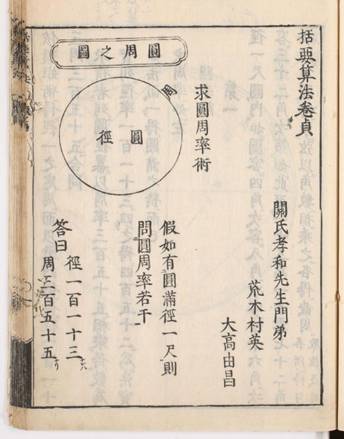 括要算法卷貞
關氏孝和先生門弟
荒木村英
大高由昌
求圓周率術
圓周之圖
周
圓
徑
假如有圓滿徑一尺則
問圓周率若干
答曰
徑一百一十三
周三百五十五